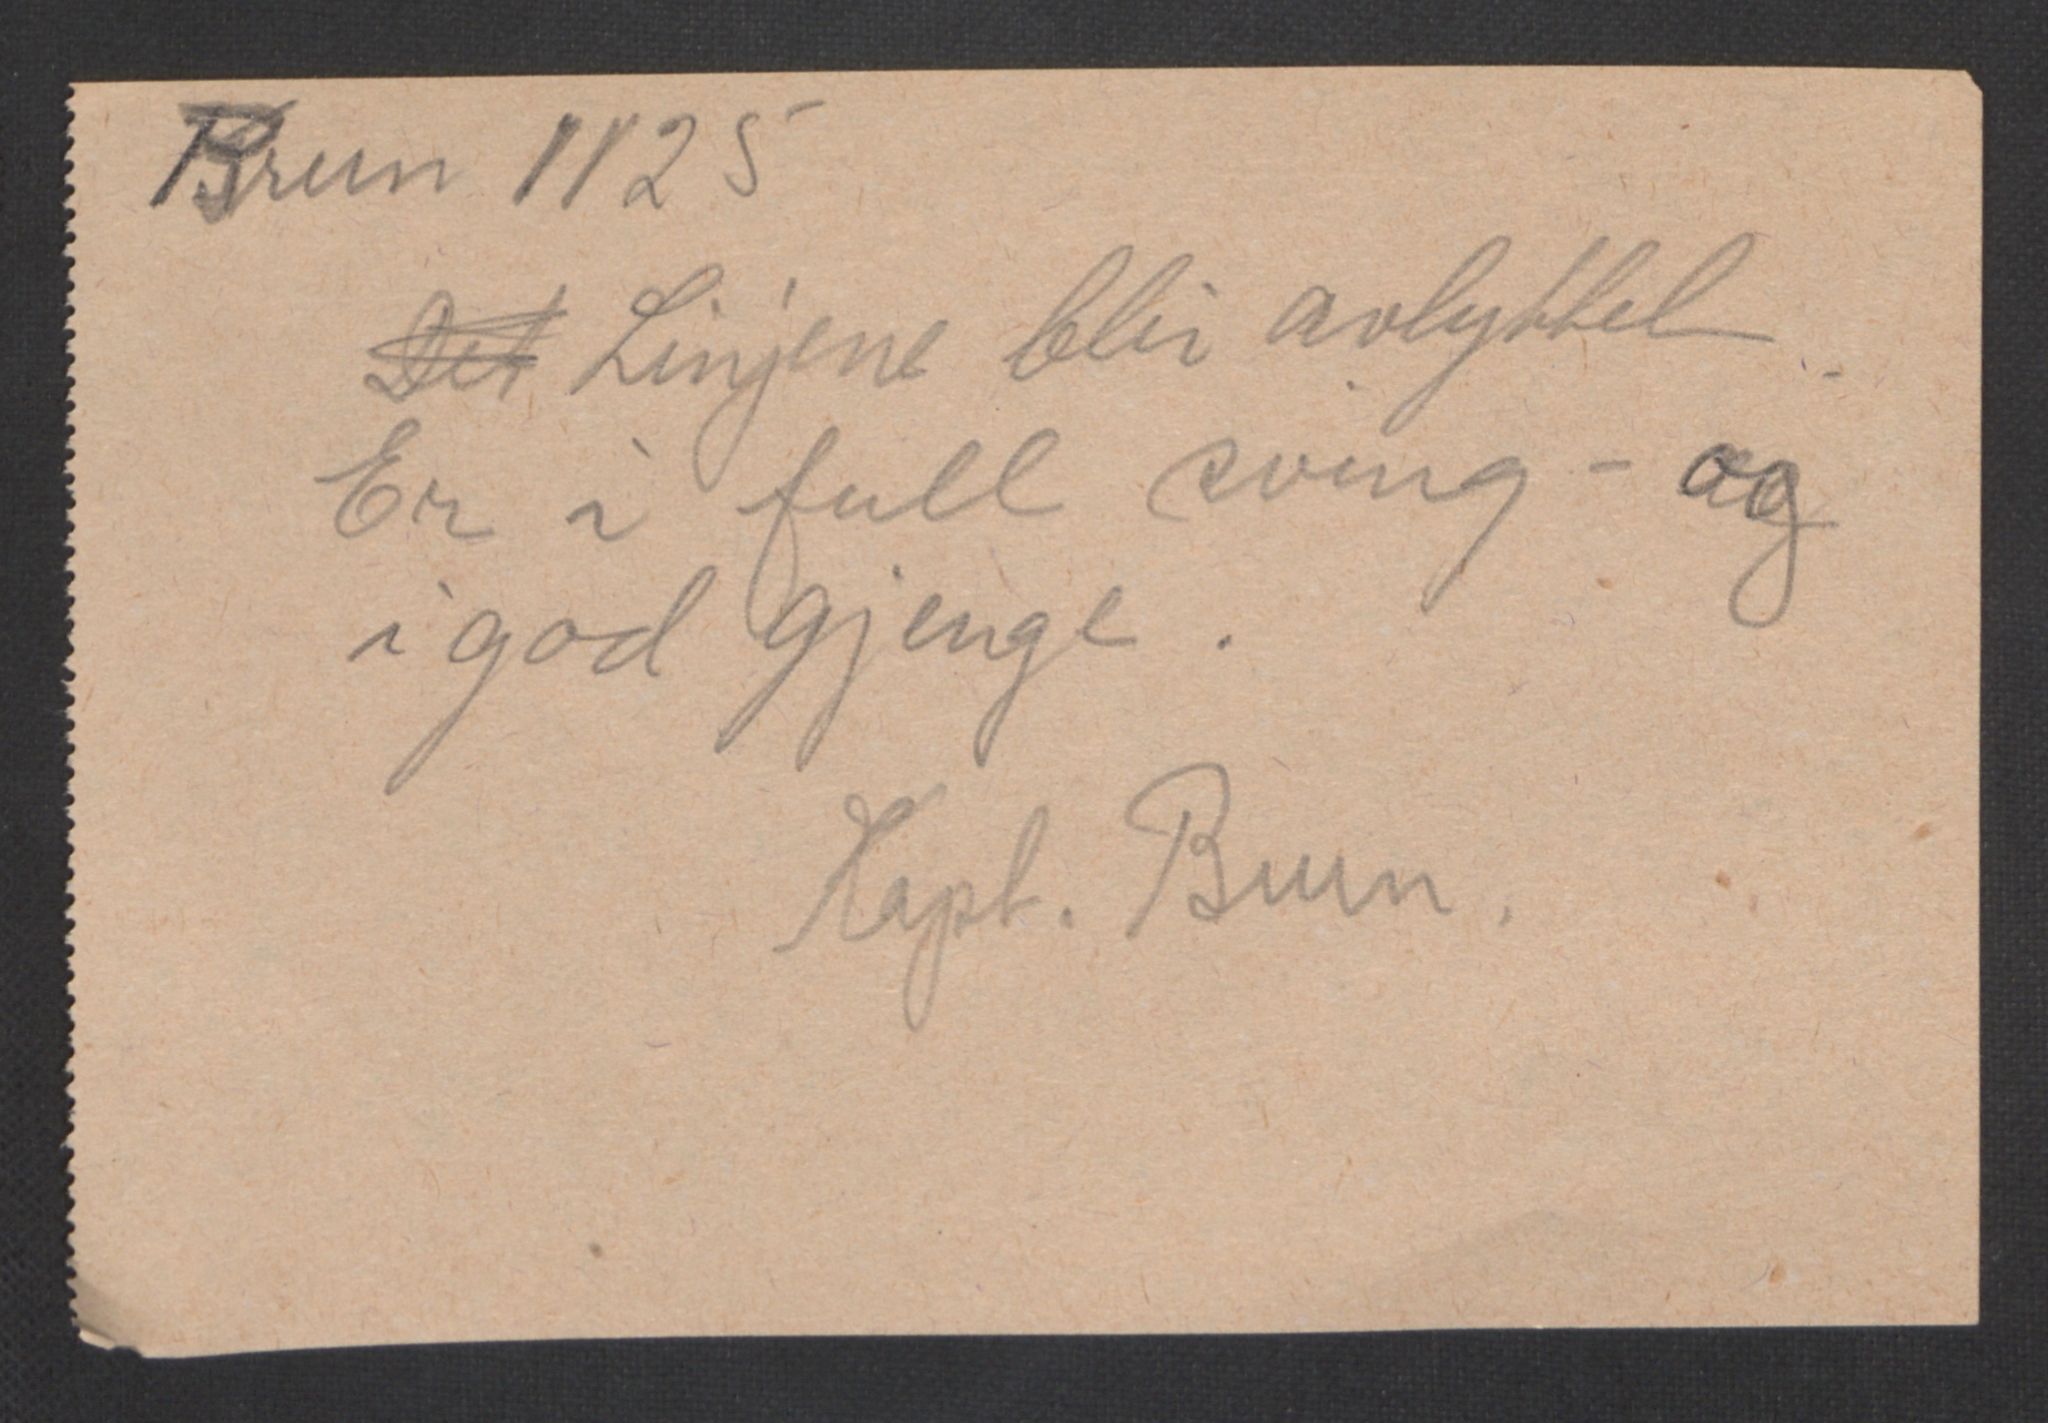 Brun 1125
~~Det~~ Linjene blir avlyttet.
Er i full sving - og
i god gjenge.
Kapt. Brun.